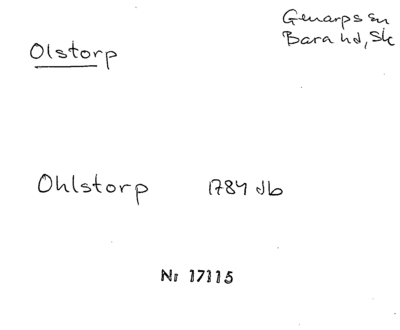 Genarps sn
Bara hd, Sk
Olstorp
Ohlstorp 1784 db
Nr 17115